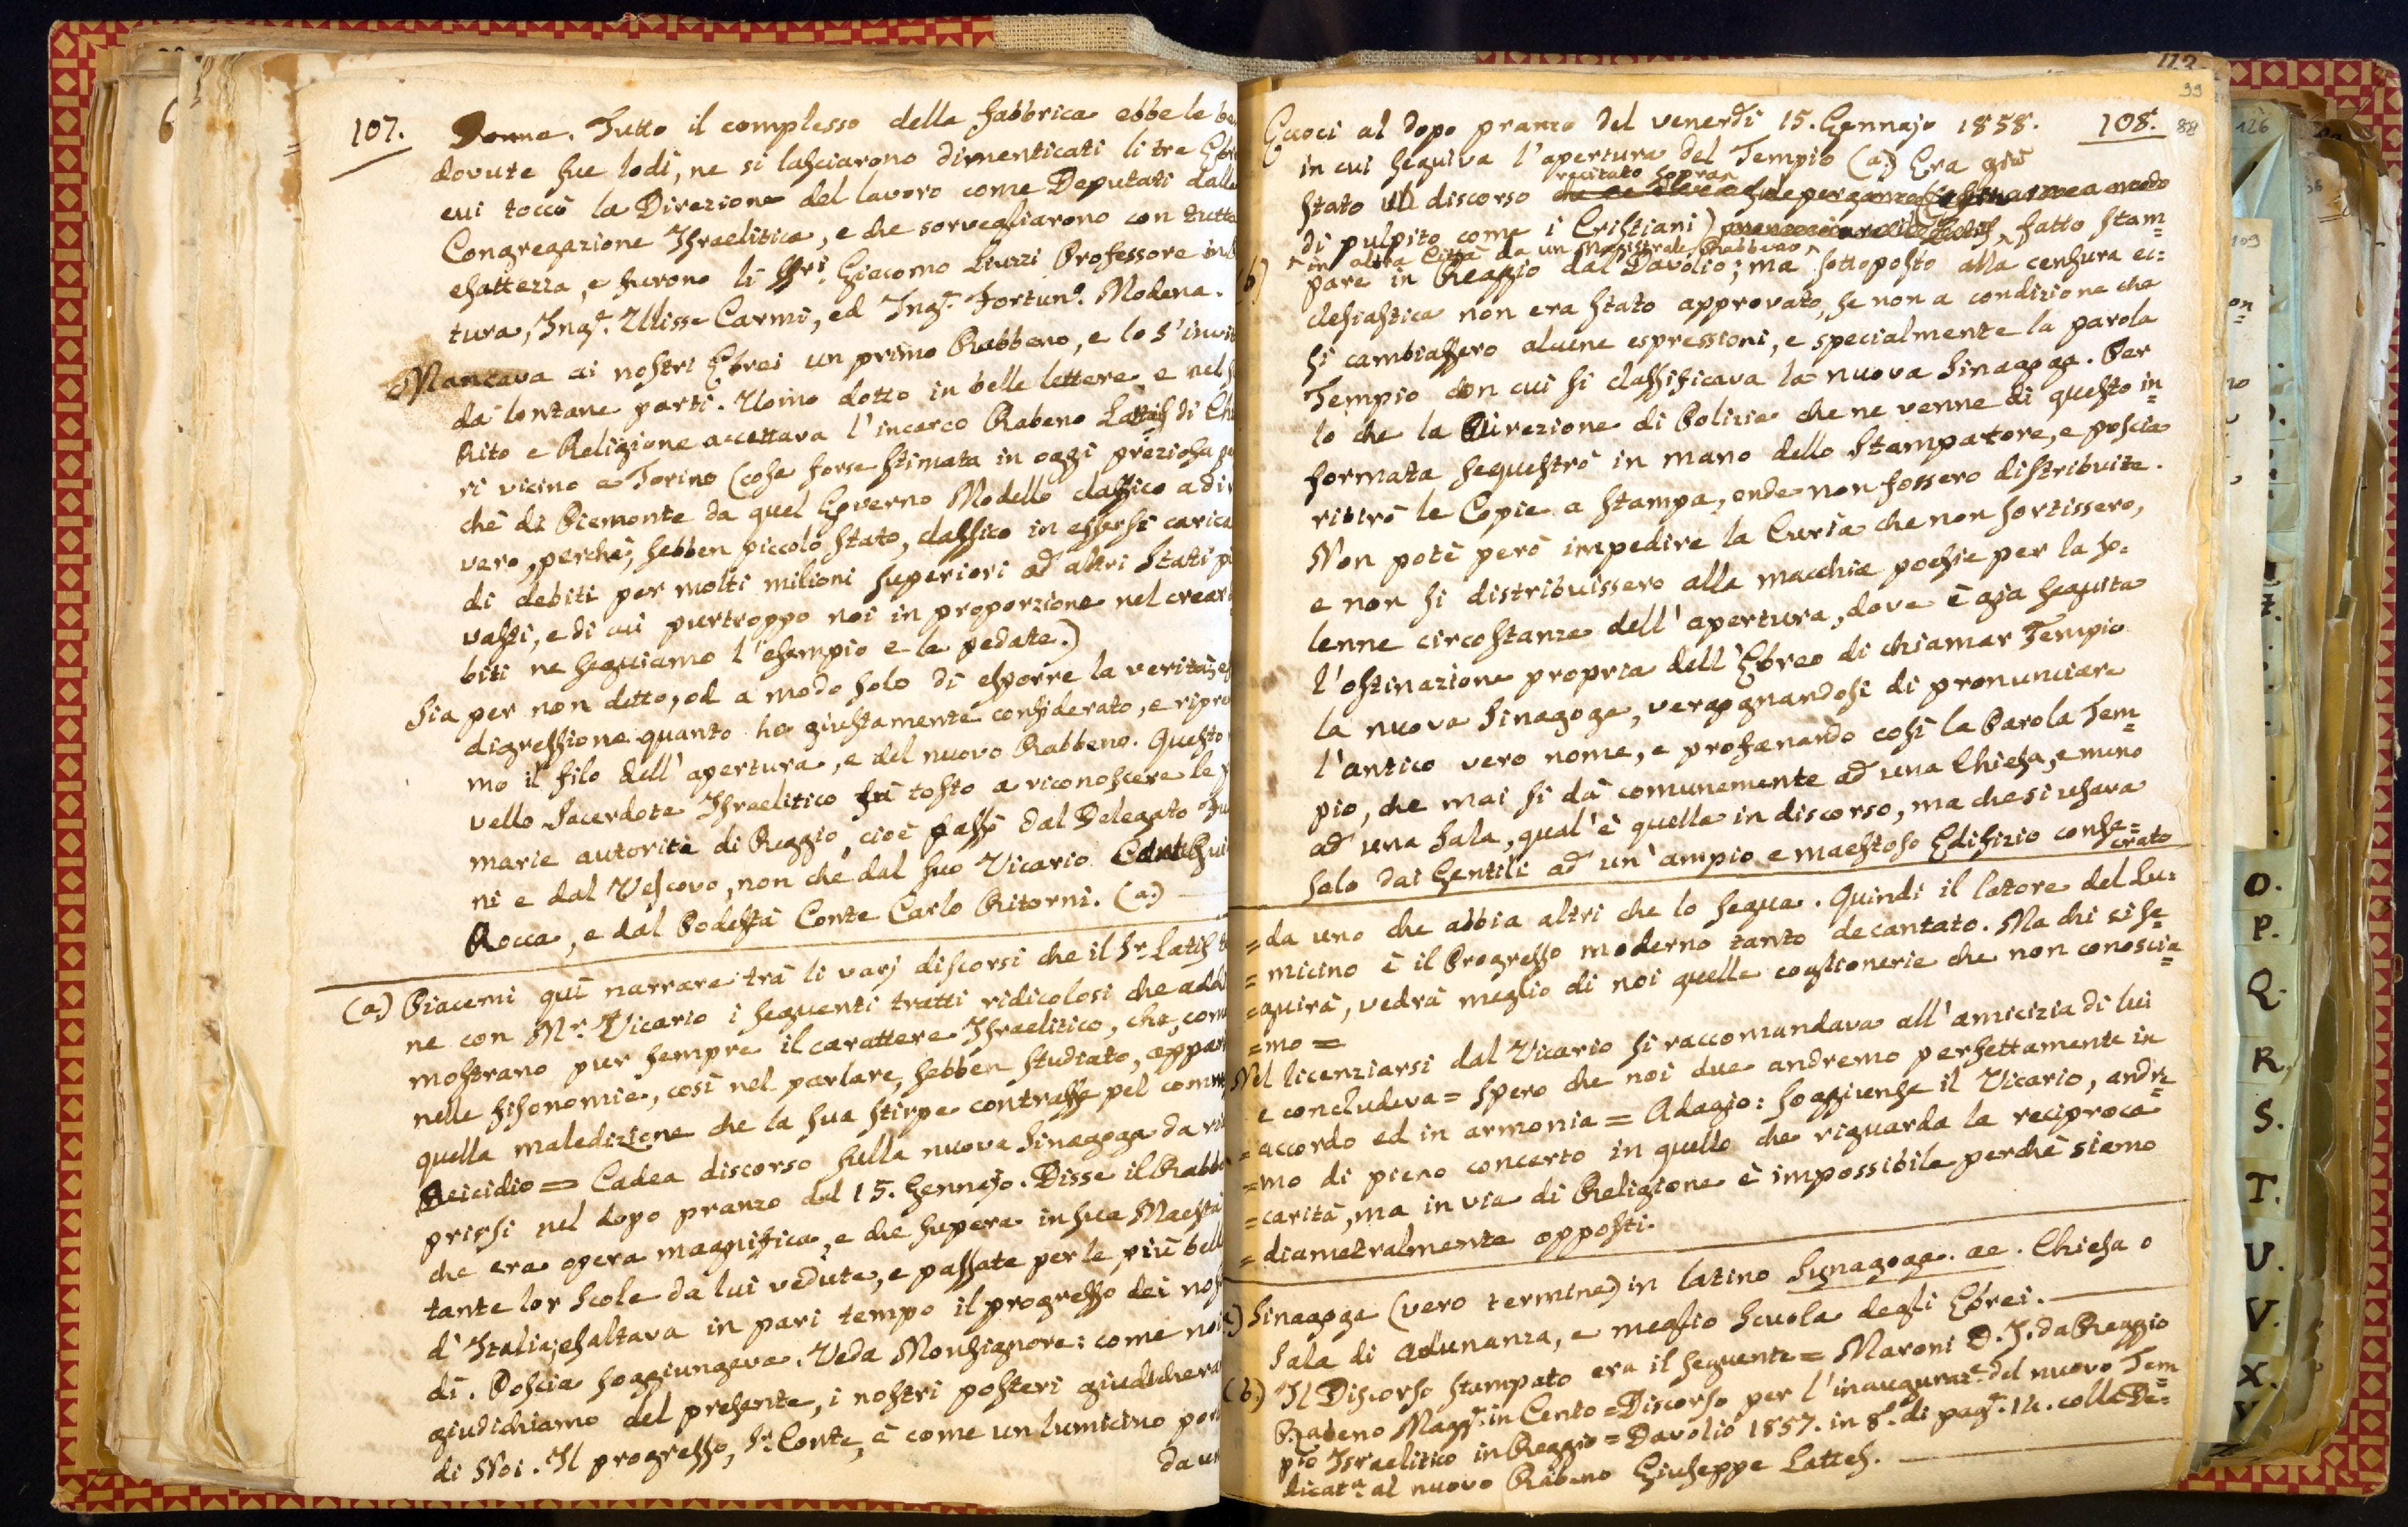 107.
Donne. Tutto il complesso della fabbrica ebbe le
dovute sue lodi, ne si lasciarono dimenticati li tre
cui toccò la Direzione del lavoro come Deputati dalla
Congregazione Israelitica, e che sorvegliarono con tutta
esattezza, e furono li Sri. Giacomo Liuzzi Professore in
tura, Ingr. Ulisse Carmi, ed Ingr. Fortuno. Modena.
Mancava ai nostri Ebrei un primo Rabbeno, e lo s'
da lontane parti. Uomo dotto in belle lettere e nel
Rito e Religione accettava l'incarco Rabeno Lattes di
ri vicino a Torino (cosa forse stimata in oggi preziosa
chè di Piemonte da quel Governo Modello classico a
vero, perchè, sebben piccolo stato, classico in essersi
di debiti per molti milioni superiori ad altri Stati
vasti, e di cui purtroppo noi in proporzione nel
biti ne seguiamo l'esempio e le pedate.)
Sia per non detto, od a modo solo di esporre la verità,
digressione quanto ho giustamente considerato, e
mo il filo dell'apertura, e del nuovo Rabbeno. Questo
vello Sacerdote Israelitico fù tosto a riconoscere le
marie autorità di Reggio, cioè passò dal Delegato
ni e dal Vescovo, non che dal suo Vicario
Rocca, e dal Podestà Conte Carlo Ritorni. (a.)
(a.) Piacemi quì narrare trà li varj discorsi che il Sr. Lates
ne con Mr. Vicario i seguenti tratti ridicolosi che
mostrano pur sempre il carattere Israelitico, che,
nelle fisonomie, così nel parlare, sebben studiato,
quella maledizione che la sua stirpe contrasse pel
Deicidio = Cadea discorso sulla nuova Sinagoga da
prirsi nel dopo pranzo del 15. Gennajo. Disse il
che era opera magnifica, e che supera in sua Maestà
tante lor Scole da lui vedute, e passate per le più
d'Italia; esaltava in pari tempo il progresso dei
dì. Poscia soggiungeva. Veda Monsignore: come noi
giudichiamo del presente, i nostri posteri
di Noi. Il progresso, Sr. Conte, è come un lumicino
da
113.
99
108.
88
al dopo pranzo del venerdì 15. Gennajo 1858.
in cui seguiva l'apertura del Tempio (a.) Era già
recitato sopra
stato un discorso
di pulpito come i Cristiani) fatto stam=
in altra Città da un Magistrale Rabbeno
pare in Reggio dal Davolio; ma sottoposto alla censura ec=
clesiastica non era stato approvato, se non a condizione che
si cambiassero alcune espressioni, e specialmente la parola
Tempio con cui si classificava la nuova Sinagoga. Per
lo che la Direzione di Polizia che ne venne di questo in=
formata sequestrò in mano dello Stampatore, e poscia
ritirò le Copie a stampa, onde non fossero distribuite.
Non potè però impedire la Curia che non sortissero,
e non si distribuissero alla macchia poesie per la so=
lenne circostanza dell'apertura, dove è già seguita
l'ostinazione propria dell'Ebreo di chiamar Tempio
la nuova Sinagoga, verapgnandosi di pronunciare
l'antico vero nome, e profanando così la Parola Tem=
pio, che mai si dà comunemente ad una Chiesa, e meno
ad una Sala, qual'è quella in discorso, ma che si usava
solo dai Gentili ad un'ampio e maestoso Edifizio conse=
crato
= da uno che abbia altri che lo segua. Quindi il latore del lu=
= micino è il Progresso moderno tanto decantato. Ma chi ci se=
= guirà, vedrà meglio di noi quelle coglionerie che non conoscia=
= mo =
Nel licenziarsi dal Vicario si raccomandava all'amicizia di lui
e concludeva = Spero che noi due andremo perfettamente in
= accordo ed in armonia = Adagio: soggiunse il Vicario, andre=
= mo di pieno concerto in quello che riguarda la reciproca
= carità, ma in via di Religione è impossibile perchè siamo
= diametralmente opposti.
(a.) Sinagoga (vero termine) in latino Synagoga. ae. Chiesa o
Sala di Adunanza, e meglio Scuola degli Ebrei.
(b.) Il Discorso stampato era il seguente = Maroni D. J. da Reggio
Rabeno Magge. in Cento = Discorso per l'inaugurazne. del nuovo Tem=
pio Israelitico in Reggio = Davolio 1857. in 8o. di page. 14. colla De=
dicata. al nuovo Rabeno Giuseppe Lattes.
126
109
O.
P.
Q.
R.
S.
T.
U.
V.
X.